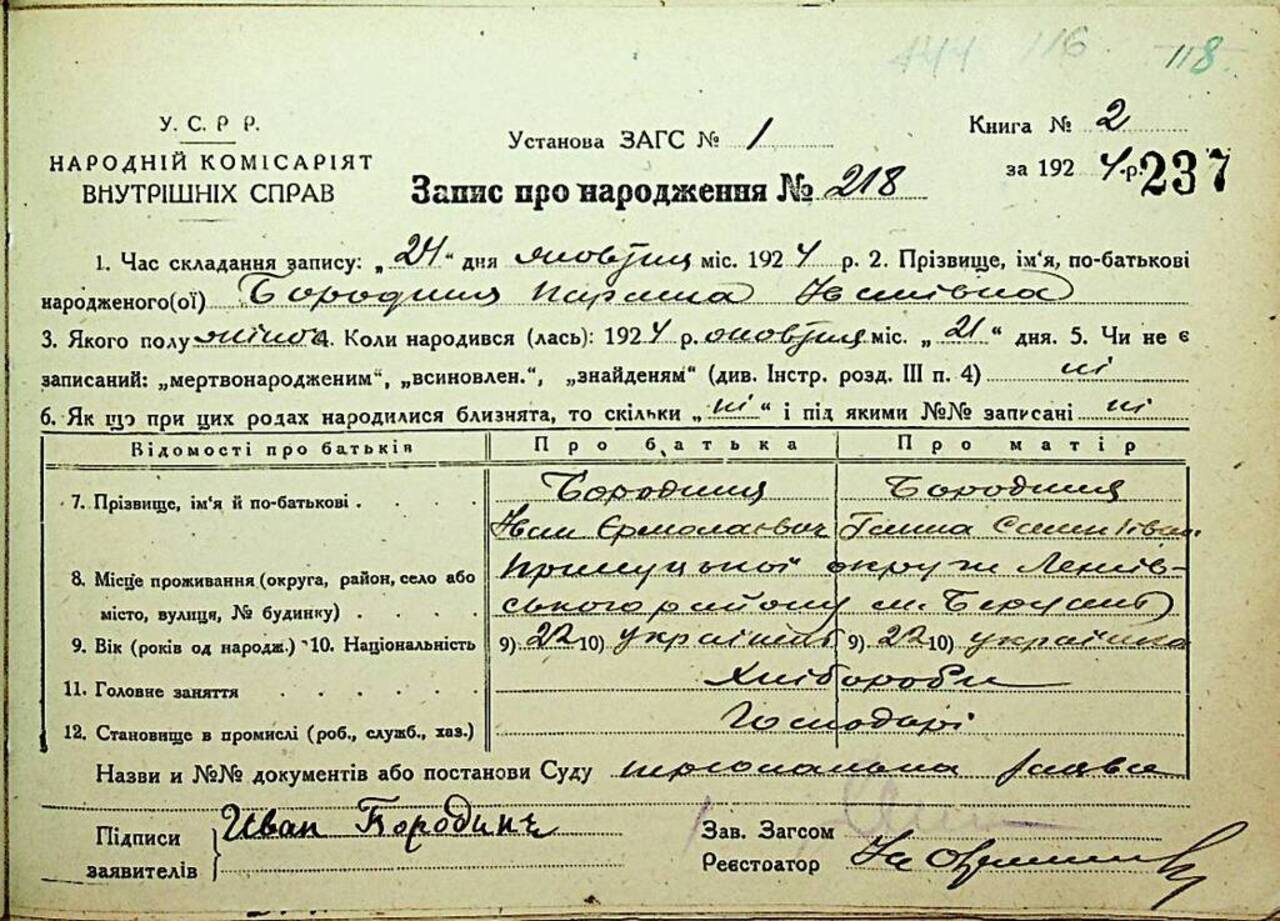 144 116 118.
У. С. Р Р.
НАРОДНІЙ КОМІСАРІЯТ
ВНУТРІШНІХ СПРАВ
Установа ЗАГС № 1
Книга № 2
за 1924 р. 237
Запис про народження № 218
1. Час складання запису: „24“ дня жовтня міс. 1924 р. 2. Прізвище, ім'я, по-батькові
народженого(ої) Бородиня Параска Іванівна
3. Якого полу жіноч. 4. Коли народився (лась): 1924 р. жовтня міс. „21“ дня. 5. Чи не є
записаний: „мертвонародженим“, „всиновлен.“, „знайденям“ (див. Інстр. розд. III п. 4) ні
6. Як що при цих родах народилися близнята, то скільки „ні“ і під якими №№ записані ні
Відомості про батьків Про батька Про матір
7. Прізвище, ім'я й по-батькові . . . . Бородиня Бородиня
Іван Єрмолаєвич Ганна
8. Місце проживання (округа, район, село або Прилуцької округи Ленів-
місто, вулиця, № будинку) . . . . ського району м.
9. Вік (років од народж.) 10. Національність 9) 22 10) українець 9) 22 10) українка
11. Головне заняття . . . . . . Хлібороби
12. Становище в промислі (роб., служб., хаз.) Господарі
Назви и №№ документів або постанови Суду персональна заява
Підписи
заявителів
Иван Бородинь
Зав. Загсом
Реєстратор